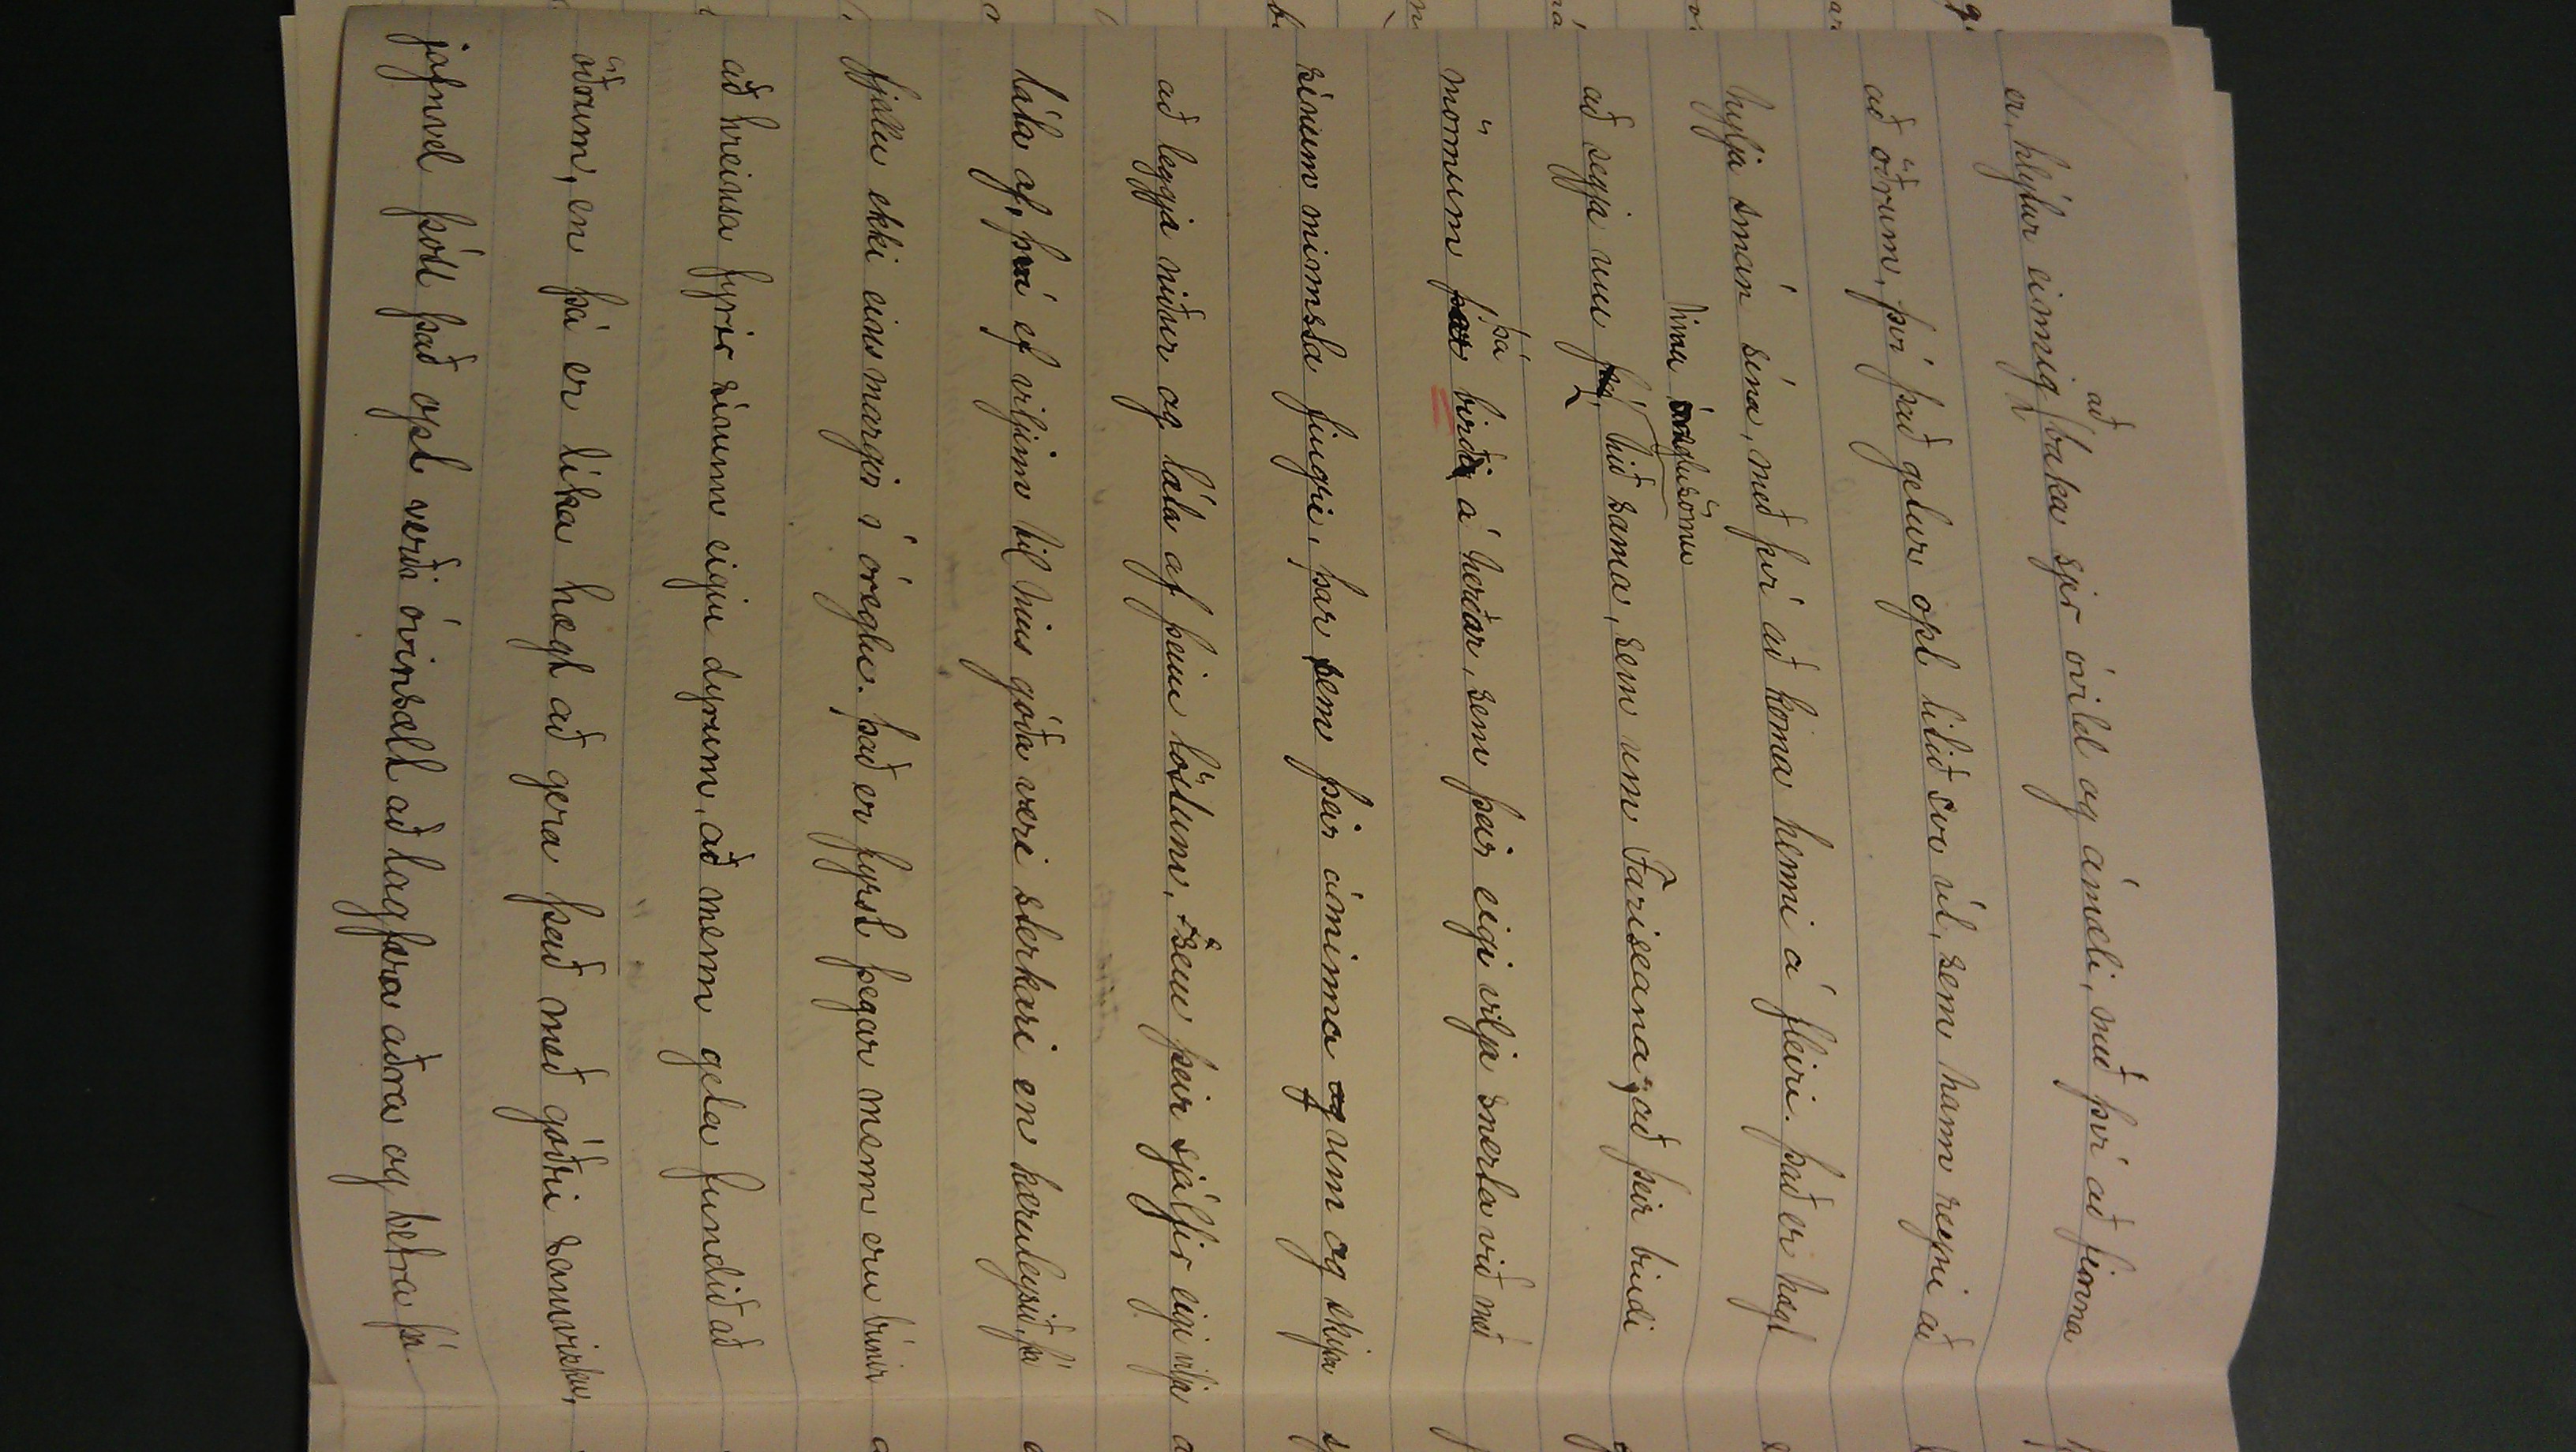 að
er, hlýtur einnig baka sjer óvild og ámæli, með því að finna
að öðrum, því það getur opt litið svo út, sem hann reyni að
hylja smán sína, með því að koma henni á fleiri. það er hægt
hinu óreglusömu
að segja um hið sama, sem um Fariseana, að þeir bindi
þá
mönnum birði á herðar, sem þeir eigi vilja snerta við með
sínum minnsta fingri, þar sem þeir áminna og um og skipa
að leggja niður og láta af þeim löstum, sem þeir sjálfir eigi vilja
láta af, því ef viljinn til hins góða veri sterkari en kæruleysið, þá
fjellu ekki eins margir í óreglu. það er fyrst þegar menn eru búnir
að hreinsa fyrir sínum eigin dyrum, að menn geta fundið að
öðrum, en þá er líka hægt að gera það með góðri samvisku,
jafnvel þótt það opt verði óvinsælt að lagfæra aðra og betra þá.